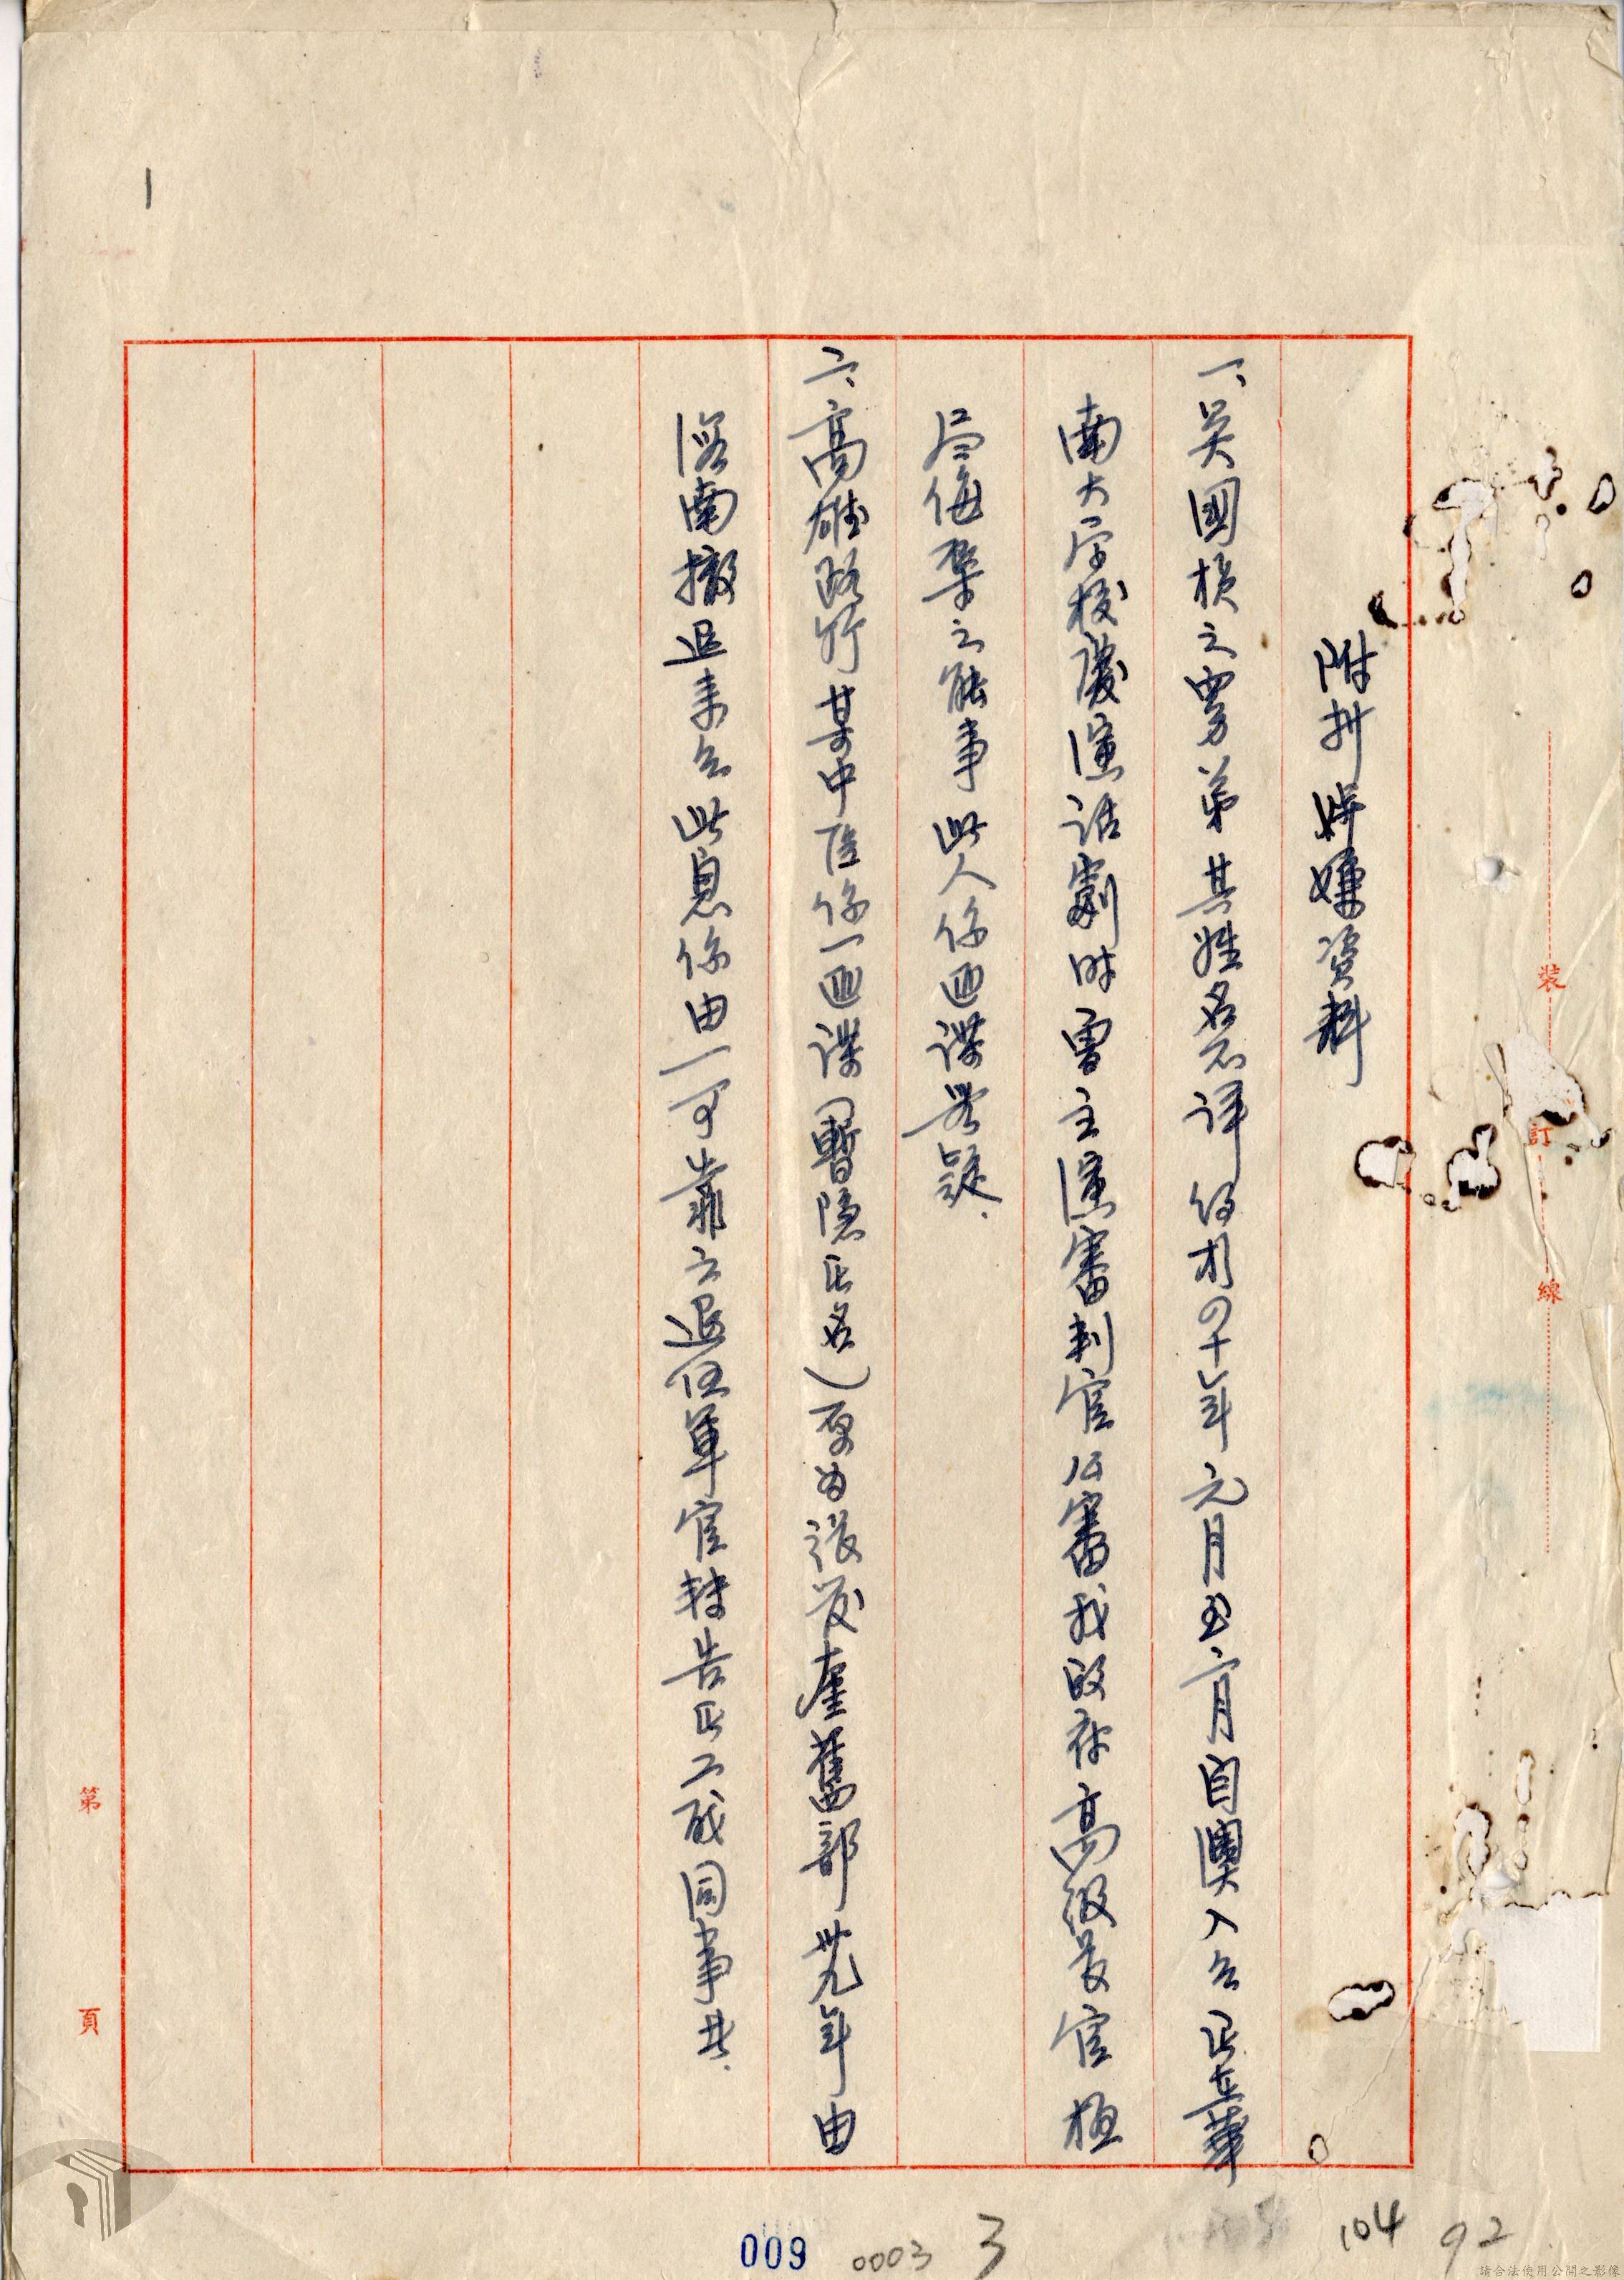 附抄涉嫌資料
一、吳國楨之男弟其姓名不詳約於四十年元月至六月自團入台呂在華
南大学校慶演話劇時曾主演審判官公審我政府高級長官極
尽侮辱之能事此人係匪諜無疑.
二、高雄路竹某中医係一匪諜(暫隐氏名)原为張发奎舊部卅九年由
滇南撤退来台此息係由一可靠之退伍軍官轉告民工成同事共.
裝
訂
線
第
頁
009
0003
3
104
92
請合法使用公開之影像